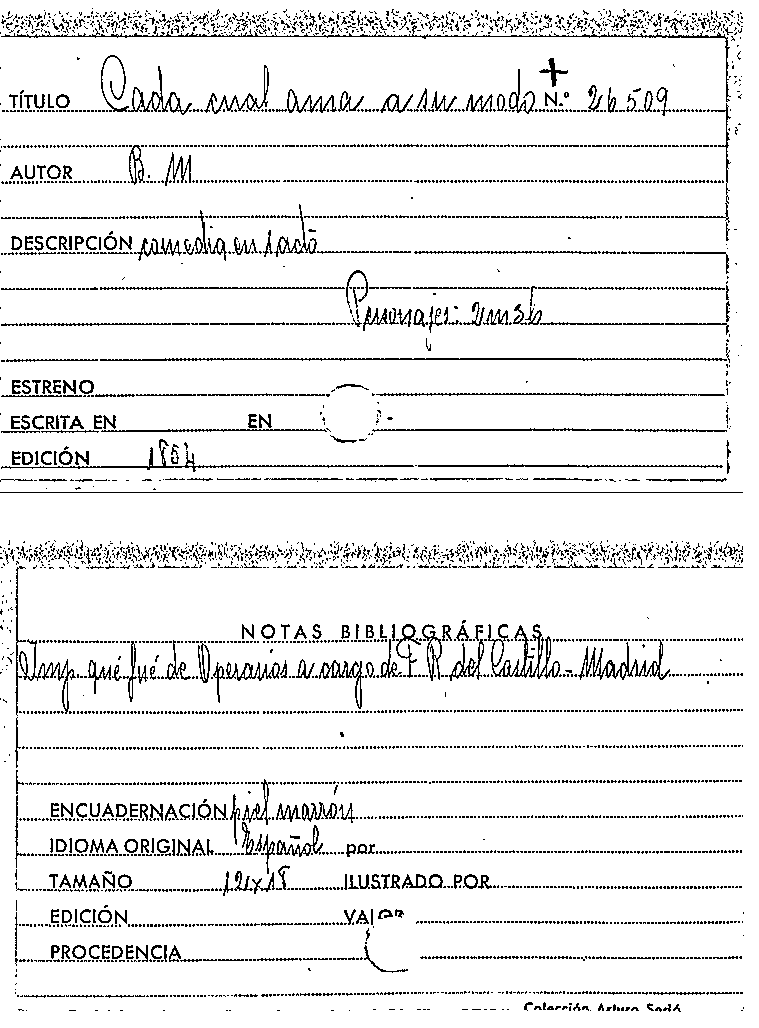 TÍTULO Cada cual ama a su modo N.º 26509
AUTOR B. M
DESCRIPCIÓN comedia en 1 acto
Personajes: 2m3h
ESTRENO
ESCRITA EN EN
EDICIÓN 1854
NOTAS BIBLIOGRÁFICAS
Imp. qué fué de Operarios a cargo de F R del Castillo - Madrid
ENCUADERNACIÓN piel marrón
IDIOMA ORIGINAL Español por
TAMAÑO 12x18 ILUSTRADO POR
EDICIÓN
PROCEDENCIA
Colección Arturo Sedó